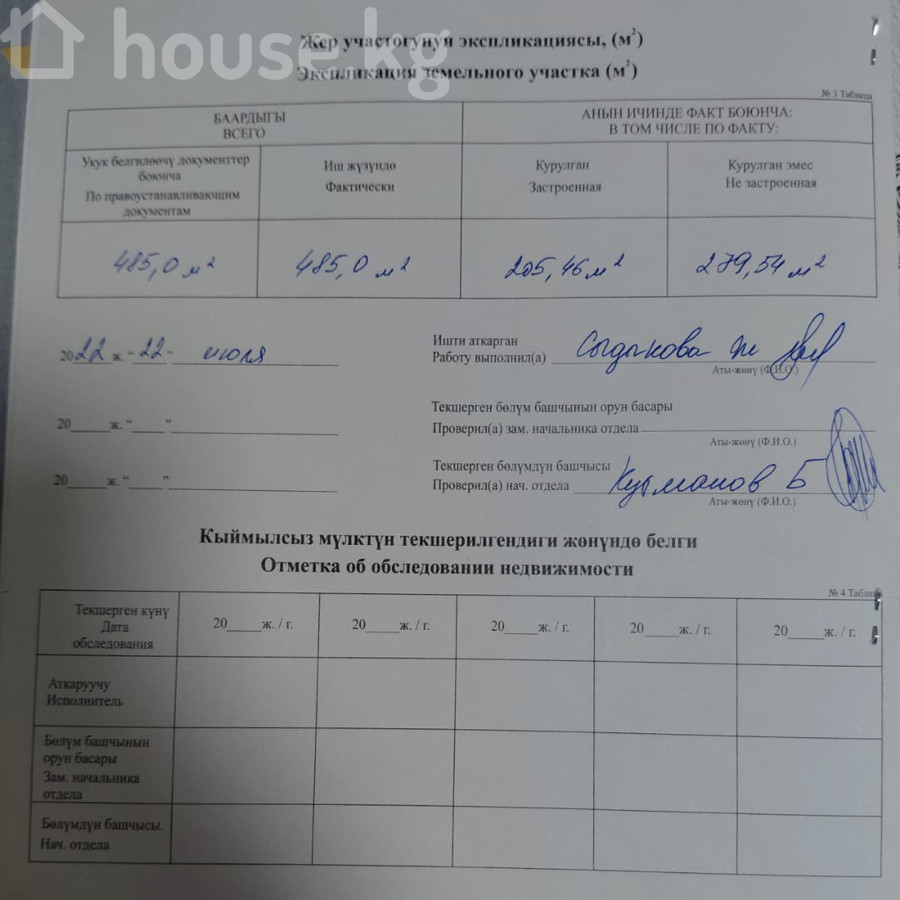 house.kg
Жер участогунун экспликациясы, (м²)
Экспликация земельного участка (м²)
№ 3 Таблица
БААРДЫГЫ
ВСЕГО
АНЫН ИЧИНДЕ ФАКТ БОЮНЧА:
В ТОМ ЧИСЛЕ ПО ФАКТУ:
Укук белгилөөчү документтер
боюнча
По правоустанавливающим
документам
Иш жүзүндө
Фактически
Курулган
Застроенная
Курулган эмес
Не застроенная
485,0 м²
485,0 м²
205,46 м²
279,54 м²
2022 ж. "22" июля
Ишти аткарган
Работу выполнил(а) Сыдыкова Ж
Аты-жөнү (Ф.И.О.)
20_____ж. "_____"
Текшерген бөлүм башчынын орун басары
Проверил(а) зам. начальника отдела
Аты-жөнү (Ф.И.О.)
20_____ж. "_____"
Текшерген бөлүмдүн башчысы
Проверил(а) нач. отдела Кутманов Б
Аты-жөнү (Ф.И.О.)
Кыймылсыз мүлктүн текшерилгендиги жөнүндө белги
Отметка об обследовании недвижимости
№ 4 Таблица
Текшерген күнү
Дата
обследования
20_____ж. / г.
20_____ж. / г.
20_____ж. / г.
20_____ж. / г.
20_____ж. / г.
Аткаруучу
Исполнитель
Бөлүм башчынын
орун басары
Зам. начальника
отдела
Бөлүмдүн башчысы.
Нач. отдела